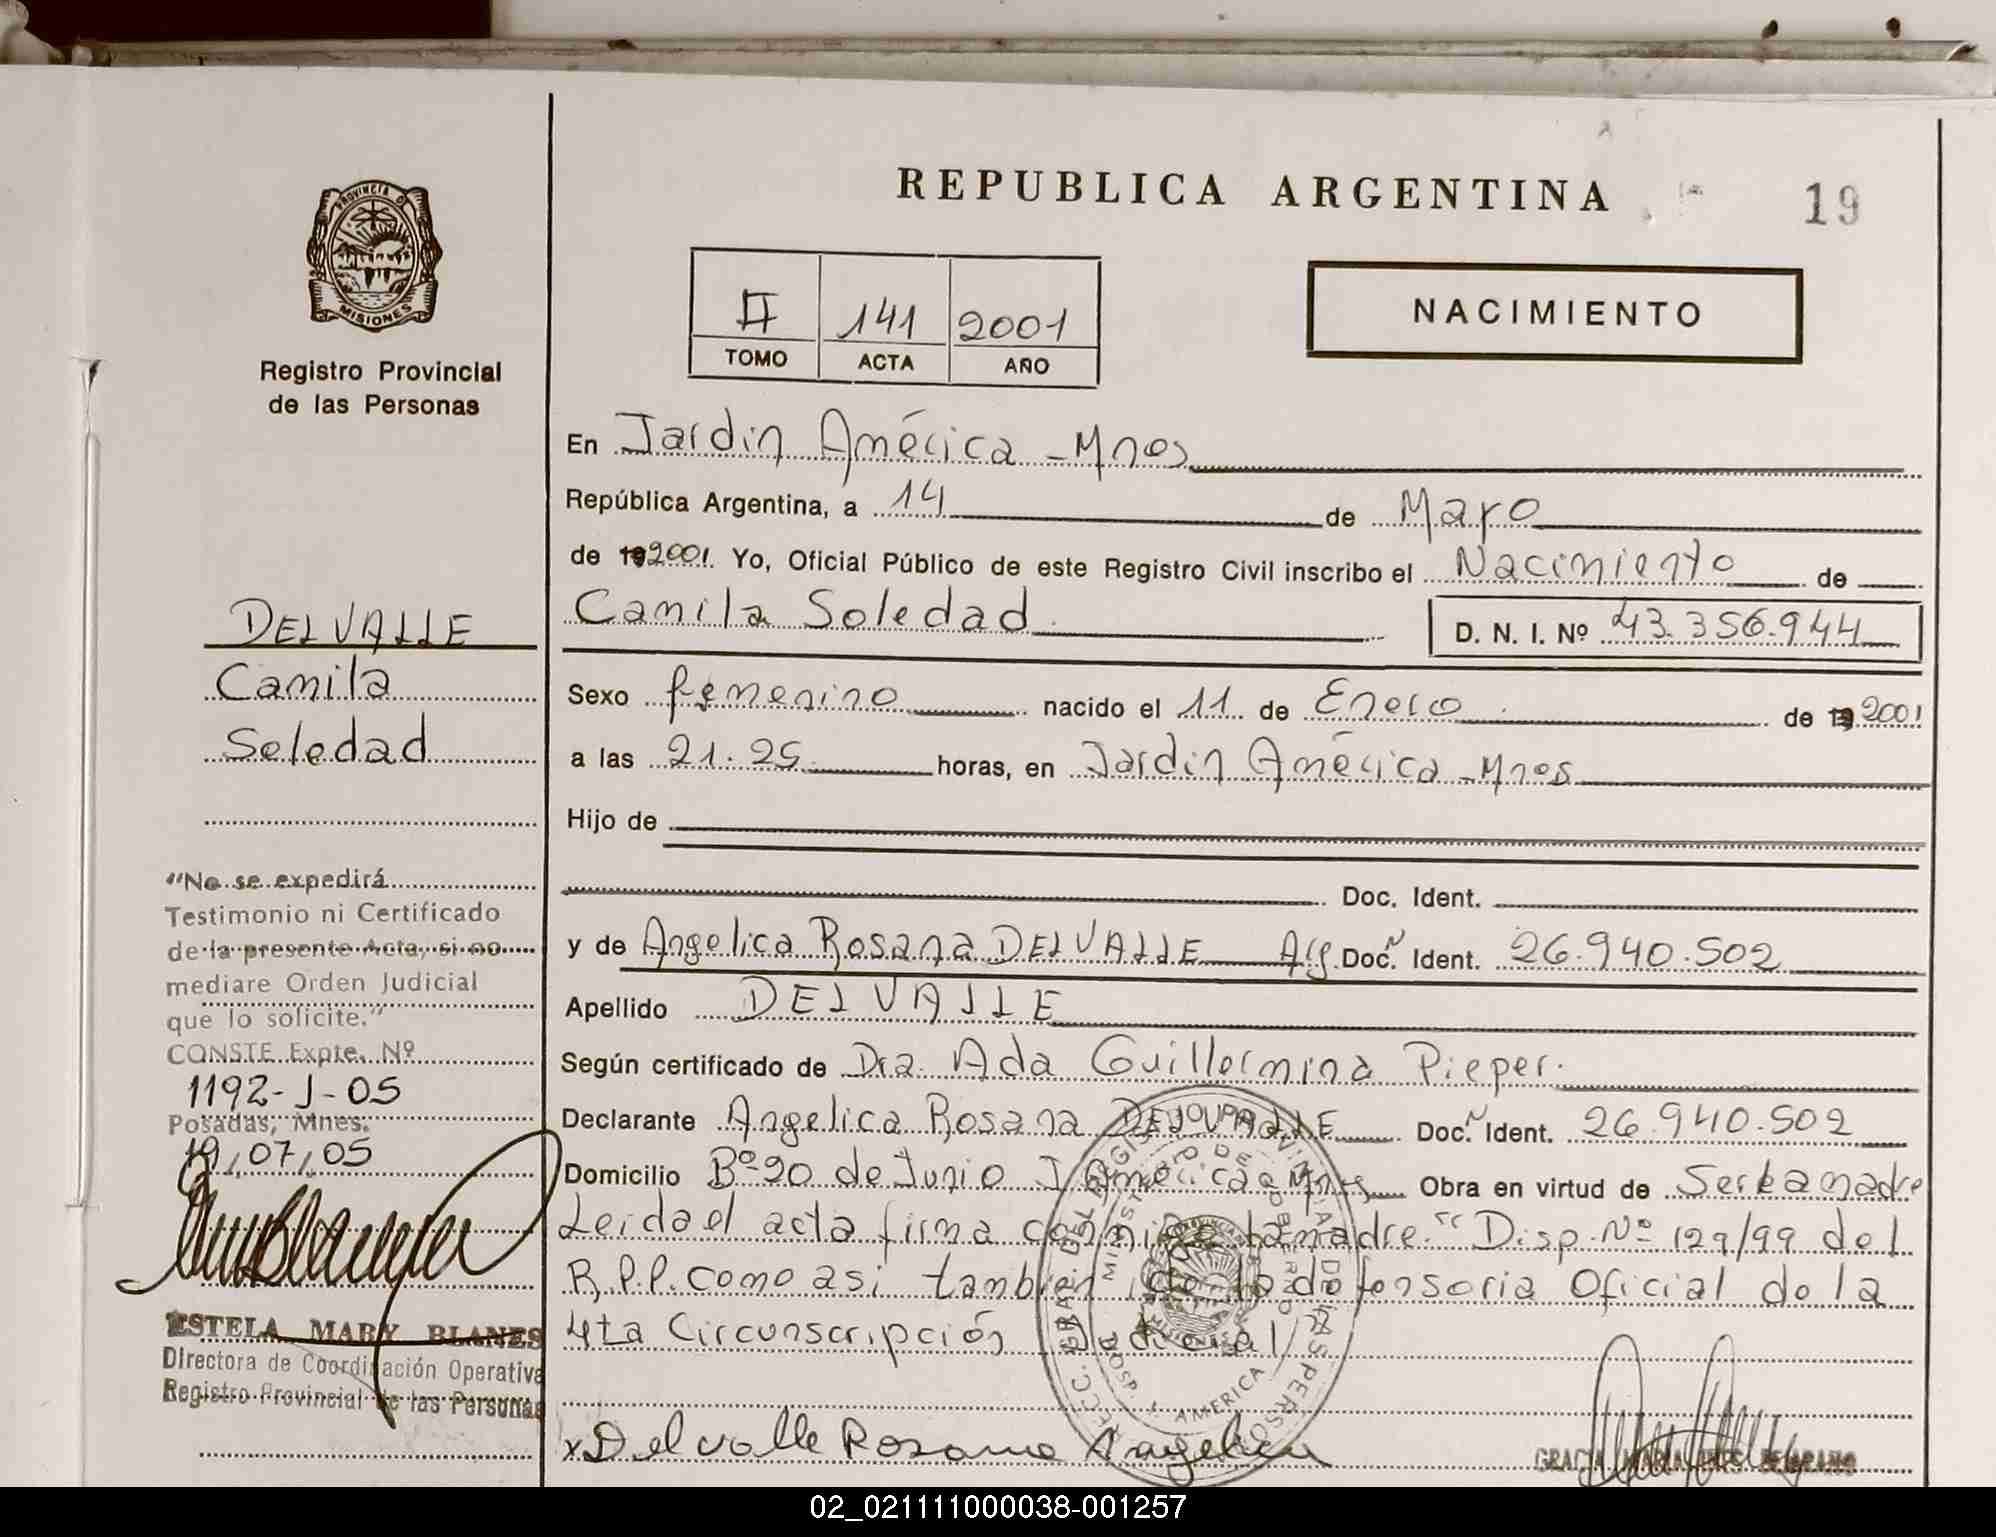 REPUBLICA ARGENTINA
19
PROVINCIA DE
MISIONES
Registro Provincial
de las Personas
II 141 2001
TOMO ACTA AÑO
NACIMIENTO
En Jardin América - Mnes
República Argentina, a 14 de Mayo
de 19 2001. Yo, Oficial Público de este Registro Civil inscribo el Nacimiento de
Camila Soledad
D. N. I. Nº 43.356.944
Sexo femenino nacido el 11 de Enero de 19 2001
a las 21.25 horas, en Jardin América - Mnes
Hijo de
Doc. Ident.
y de Angelica Rosana DELVALLE Arg. Doc. N Ident. 26.940.502
Apellido DELVALLE
Según certificado de Dra. Ada Guillermina Pieper.
Declarante Angelica Rosana DELVALLE Doc. N Ident. 26.940.502
Domicilio Bº 20 de Junio J. América Mnes Obra en virtud de Ser la madre
Leida el acta firma conmigo la madre. "Disp. Nº 129/99 del
R.P.P. como asi tambien de la defensoria Oficial de la
4ta Circunscripción Judicial
x Delvalle Rosana Angelica
DELVALLE
Camila
Soledad
"No se expedirá
Testimonio ni Certificado
de la presente Acta, si no
mediare Orden Judicial
que lo solicite."
CONSTE Expte. Nº
1192-J-05
Posadas, Mnes.
19,07,05
ESTELA MARY BLANES
Directora de Coordinación Operativa
Registro Provincial de las Personas
02_021111000038-001257